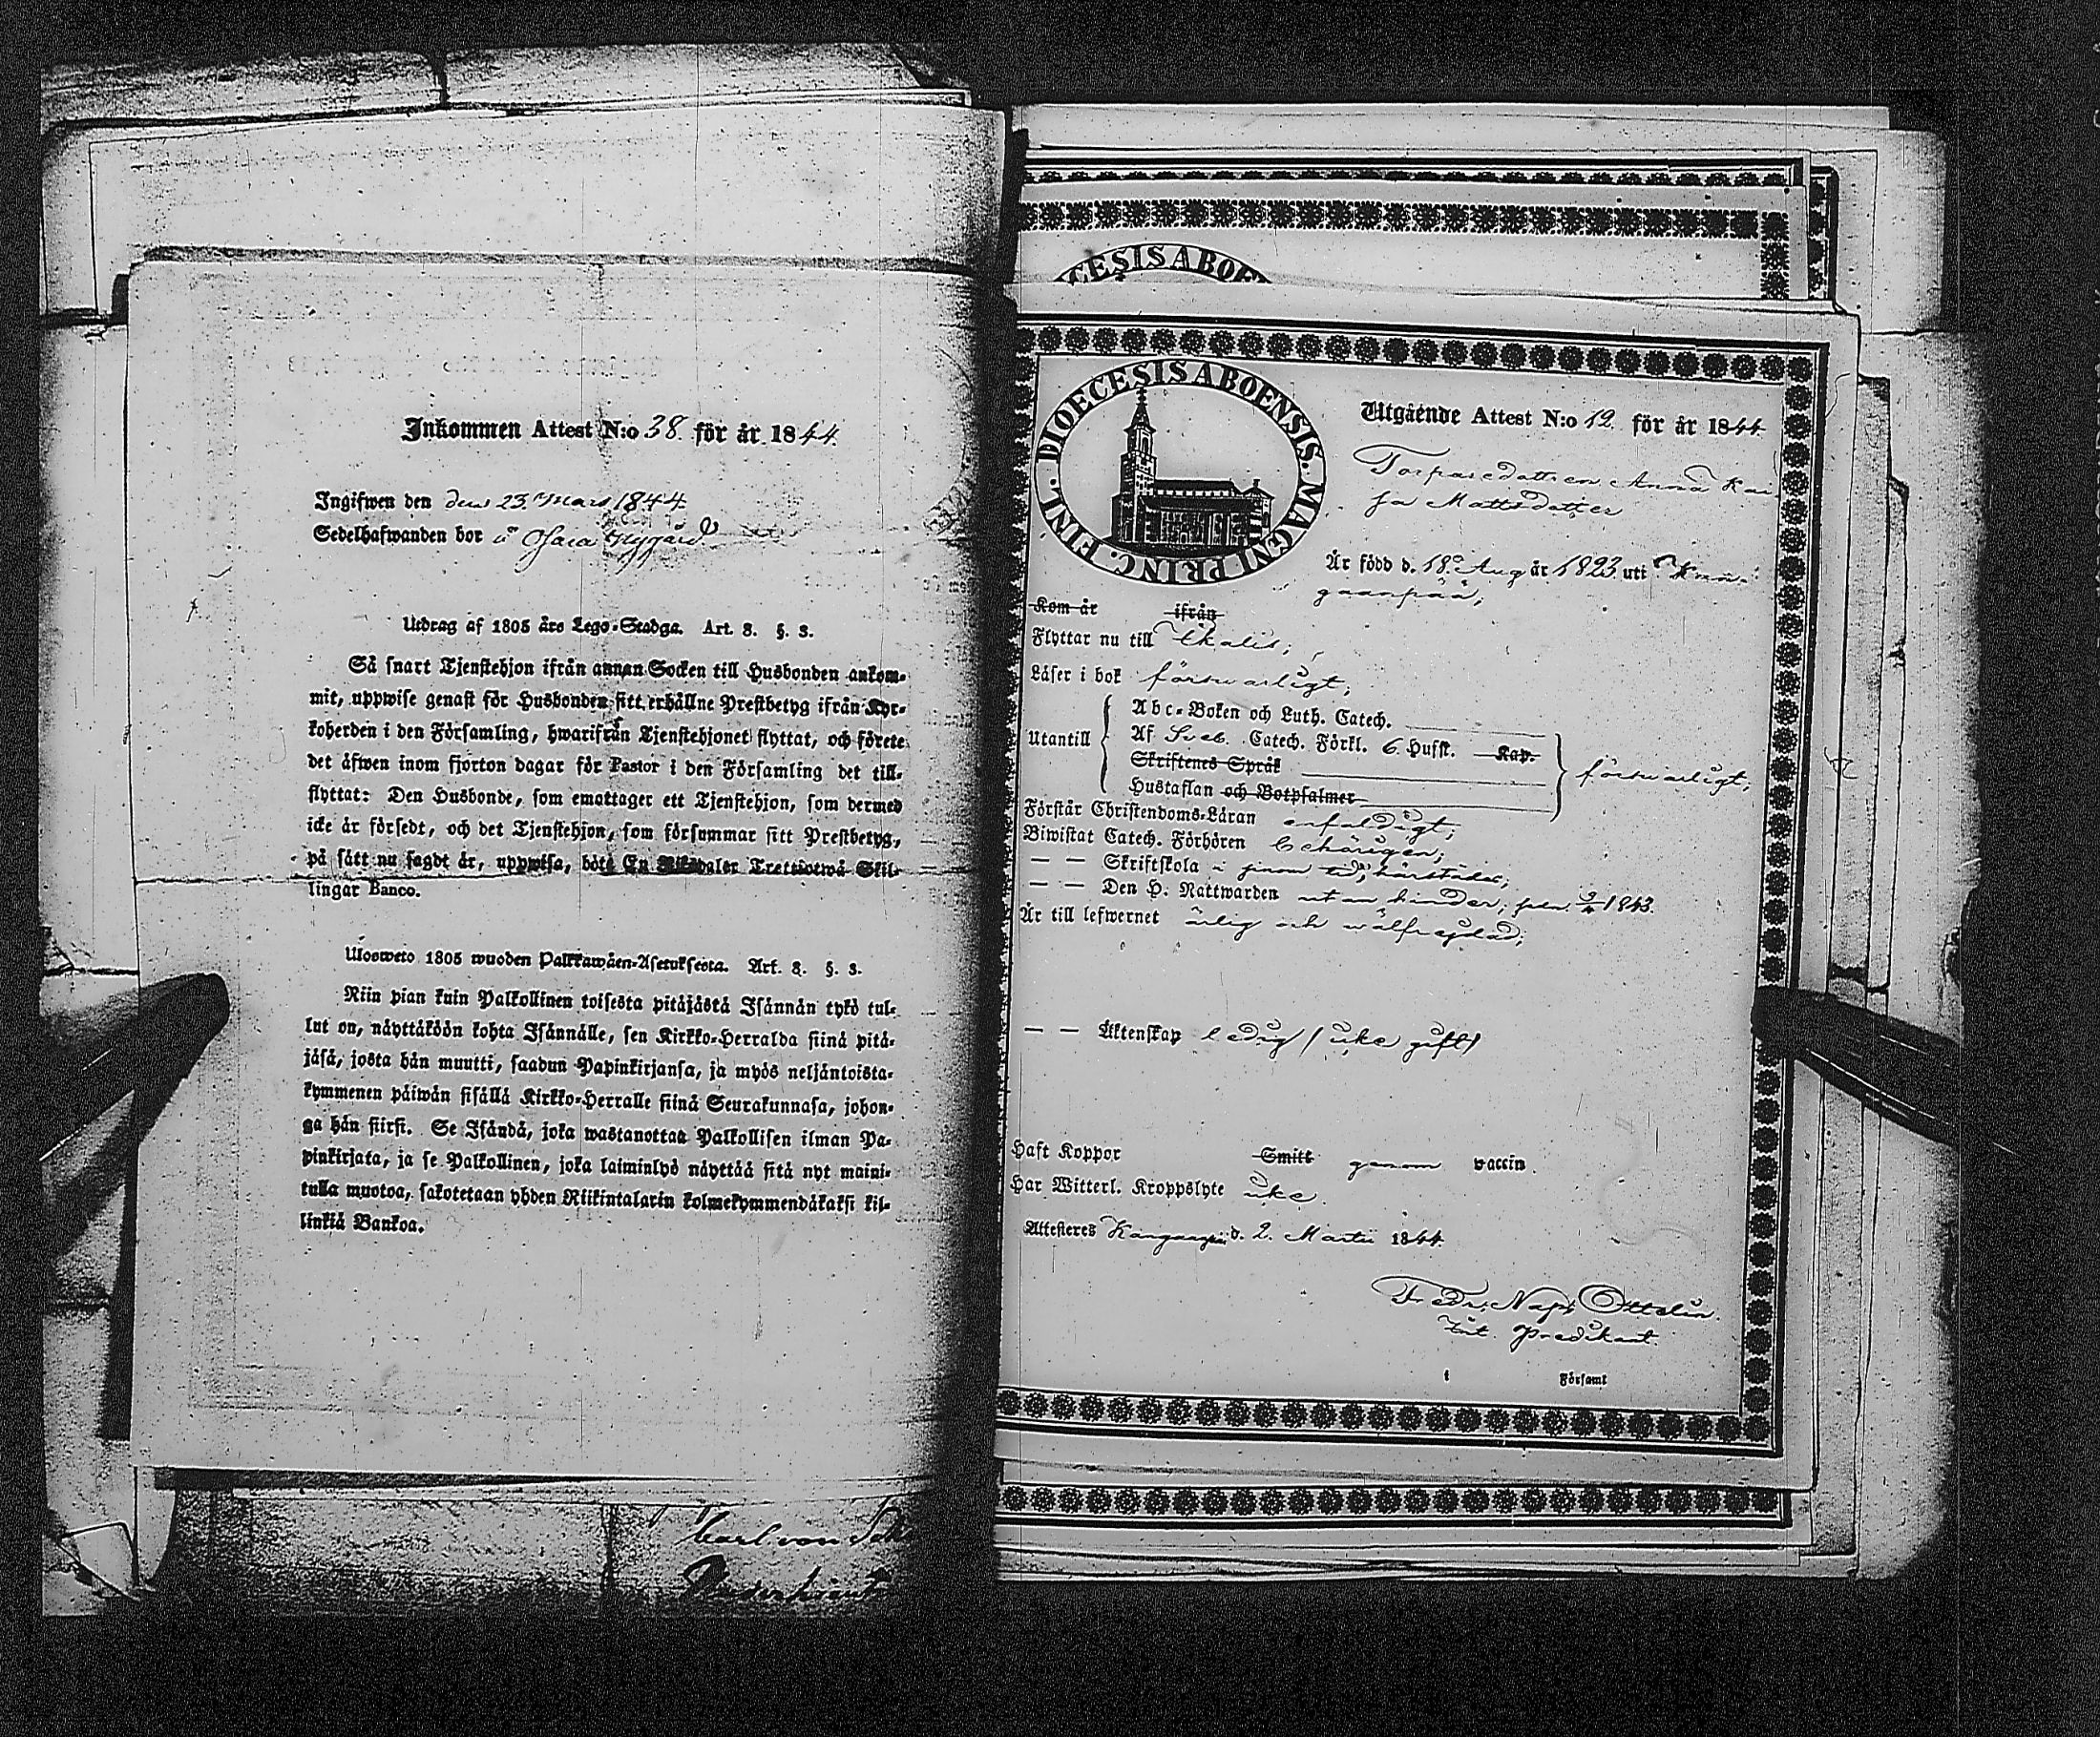 Inkommen Attest N:o 38. för år 1844.
Ingifwen den den 23 Mars 1844
Sedelhafwanden bor å Nygård
Utdrag af 1805 års Lego-Stadga. Art. 8. §. 3.
Så snart Tjenstehjon ifrån annan Socken till Husbonden ankom-
mit, uppwise genast för Husbonden sitt erhållne Prestbetyg ifrån Kyr-
koherden i den Församling, hwarifrån Tjenstehjonet flyttat, och förete
det äfwen inom fjorton dagar för Pastor i den Församling det till-
flyttat: Den Husbonde, som emottager ett Tjenstehjon, som dermed
icke är försedt, och det Tjenstehjon, som försummar sitt Prestbetyg,
på sätt nu sagdt är, uppwisa, böte En Riksdaler Trettiotwå Skil-
lingar Banco.
Uloosweto 1805 wuoden Palkkawäen-Asetuksesta. Art. 8. §. 3.
Niin pian kuin Palkollinen toisesta pitäjästä Isännän tykö tul-
lut on, näyttäköön kohta Isännälle, sen Kirkko-Herralda siinä pitä-
jäsä, josta hän muutti, saadun Papinkirjansa, ja myös neljäntoista-
kymmenen päiwän sisällä Kirkko-Herralle siinä Seurakunnasa, johon-
ga hän siirsi. Se Isändä, joka wastanottaa Palkollisen ilman Pa-
pinkirjata, ja se Palkollinen, joka laiminlyö näyttää sitä nyt maini-
tulla muotoa, sakotetaan yhden Riikintalarin kolmekymmendäkaksi kil-
linkiä Bankoa.
Carl von
CESIS ABOE
DIOECESIS ABOENSIS. MAGNI PRINC. FINL.
Utgående Attest N:o 12. för år 1844.
Torparedottren Anna Kai
sa Mattsdotter
Är född d. 18 Aug år 1823 uti Kan-
gaanpää;
Kom år ifrån
Flyttar nu till Ikalis;
Läser i bok förswarligt;
Utantill
Abc-Boken och Luth. Catech.
Af Sveb. Catech. Förkl. 6. Hufst. Kap.
Skriftenes Språk
Hustaflan och Botpsalmer
förswarligt;
Förstår Christendoms-Läran enfaldigt;
Biwistat Catech. Förhören behörigen;
— — Skriftskola i sinom tid, härstädes;
— — Den H. Nattwarden utan hinder; 1843.
Är till lefwernet ärlig och wälfrejdad;
— — Äktenskap ledig / icke gift /
Haft Koppor Smitt genom vaccin.
Har Witterl. Kroppslyte icke.
Attesteres Kangaanpää d. 2. Martii 1844.
Fredr. Ottelin.
Predikant.
i Församl